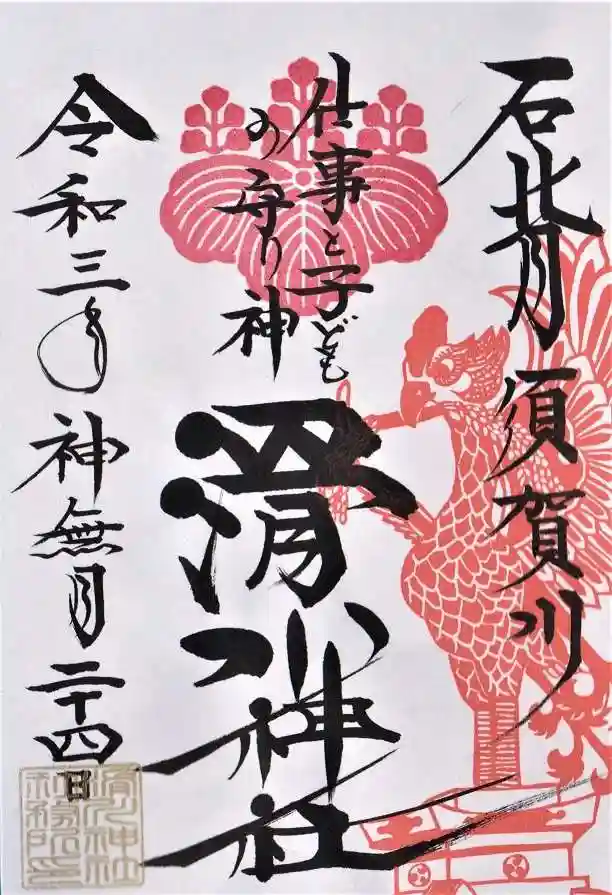 石背 須賀川
仕事と子ども
の守り神
滑川神社
令和三年 神無月 二十四日
滑川神社
社務所印